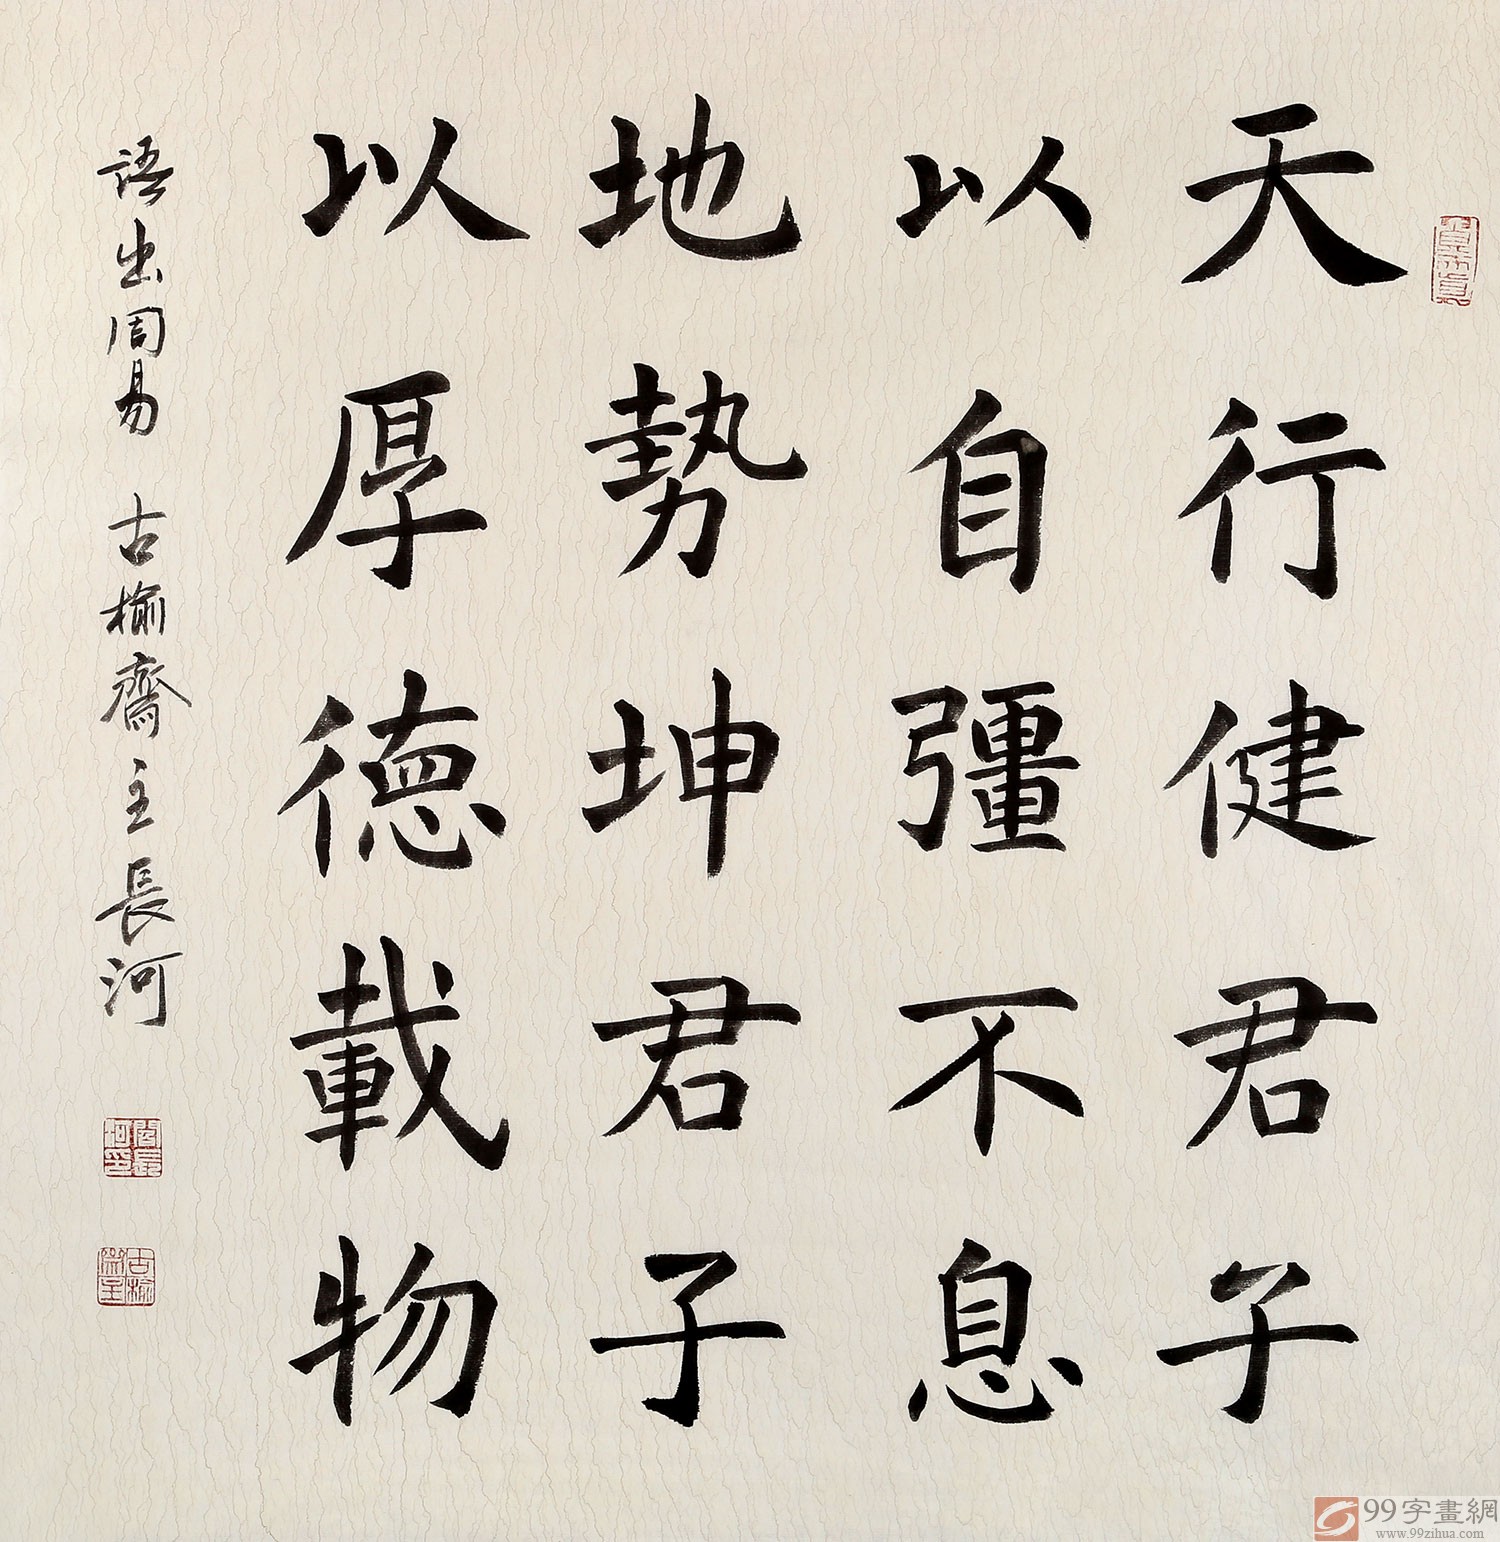 天行健君子
以自彊不息
地勢坤君子
以厚德載物
語出周易 古榆齋主長河
99字畫網
www.99zihua.com